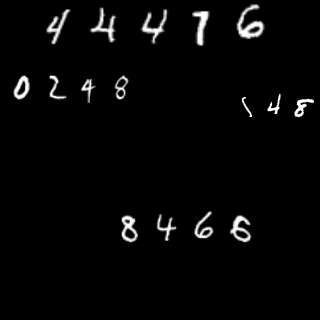 44476
0248
148
8466